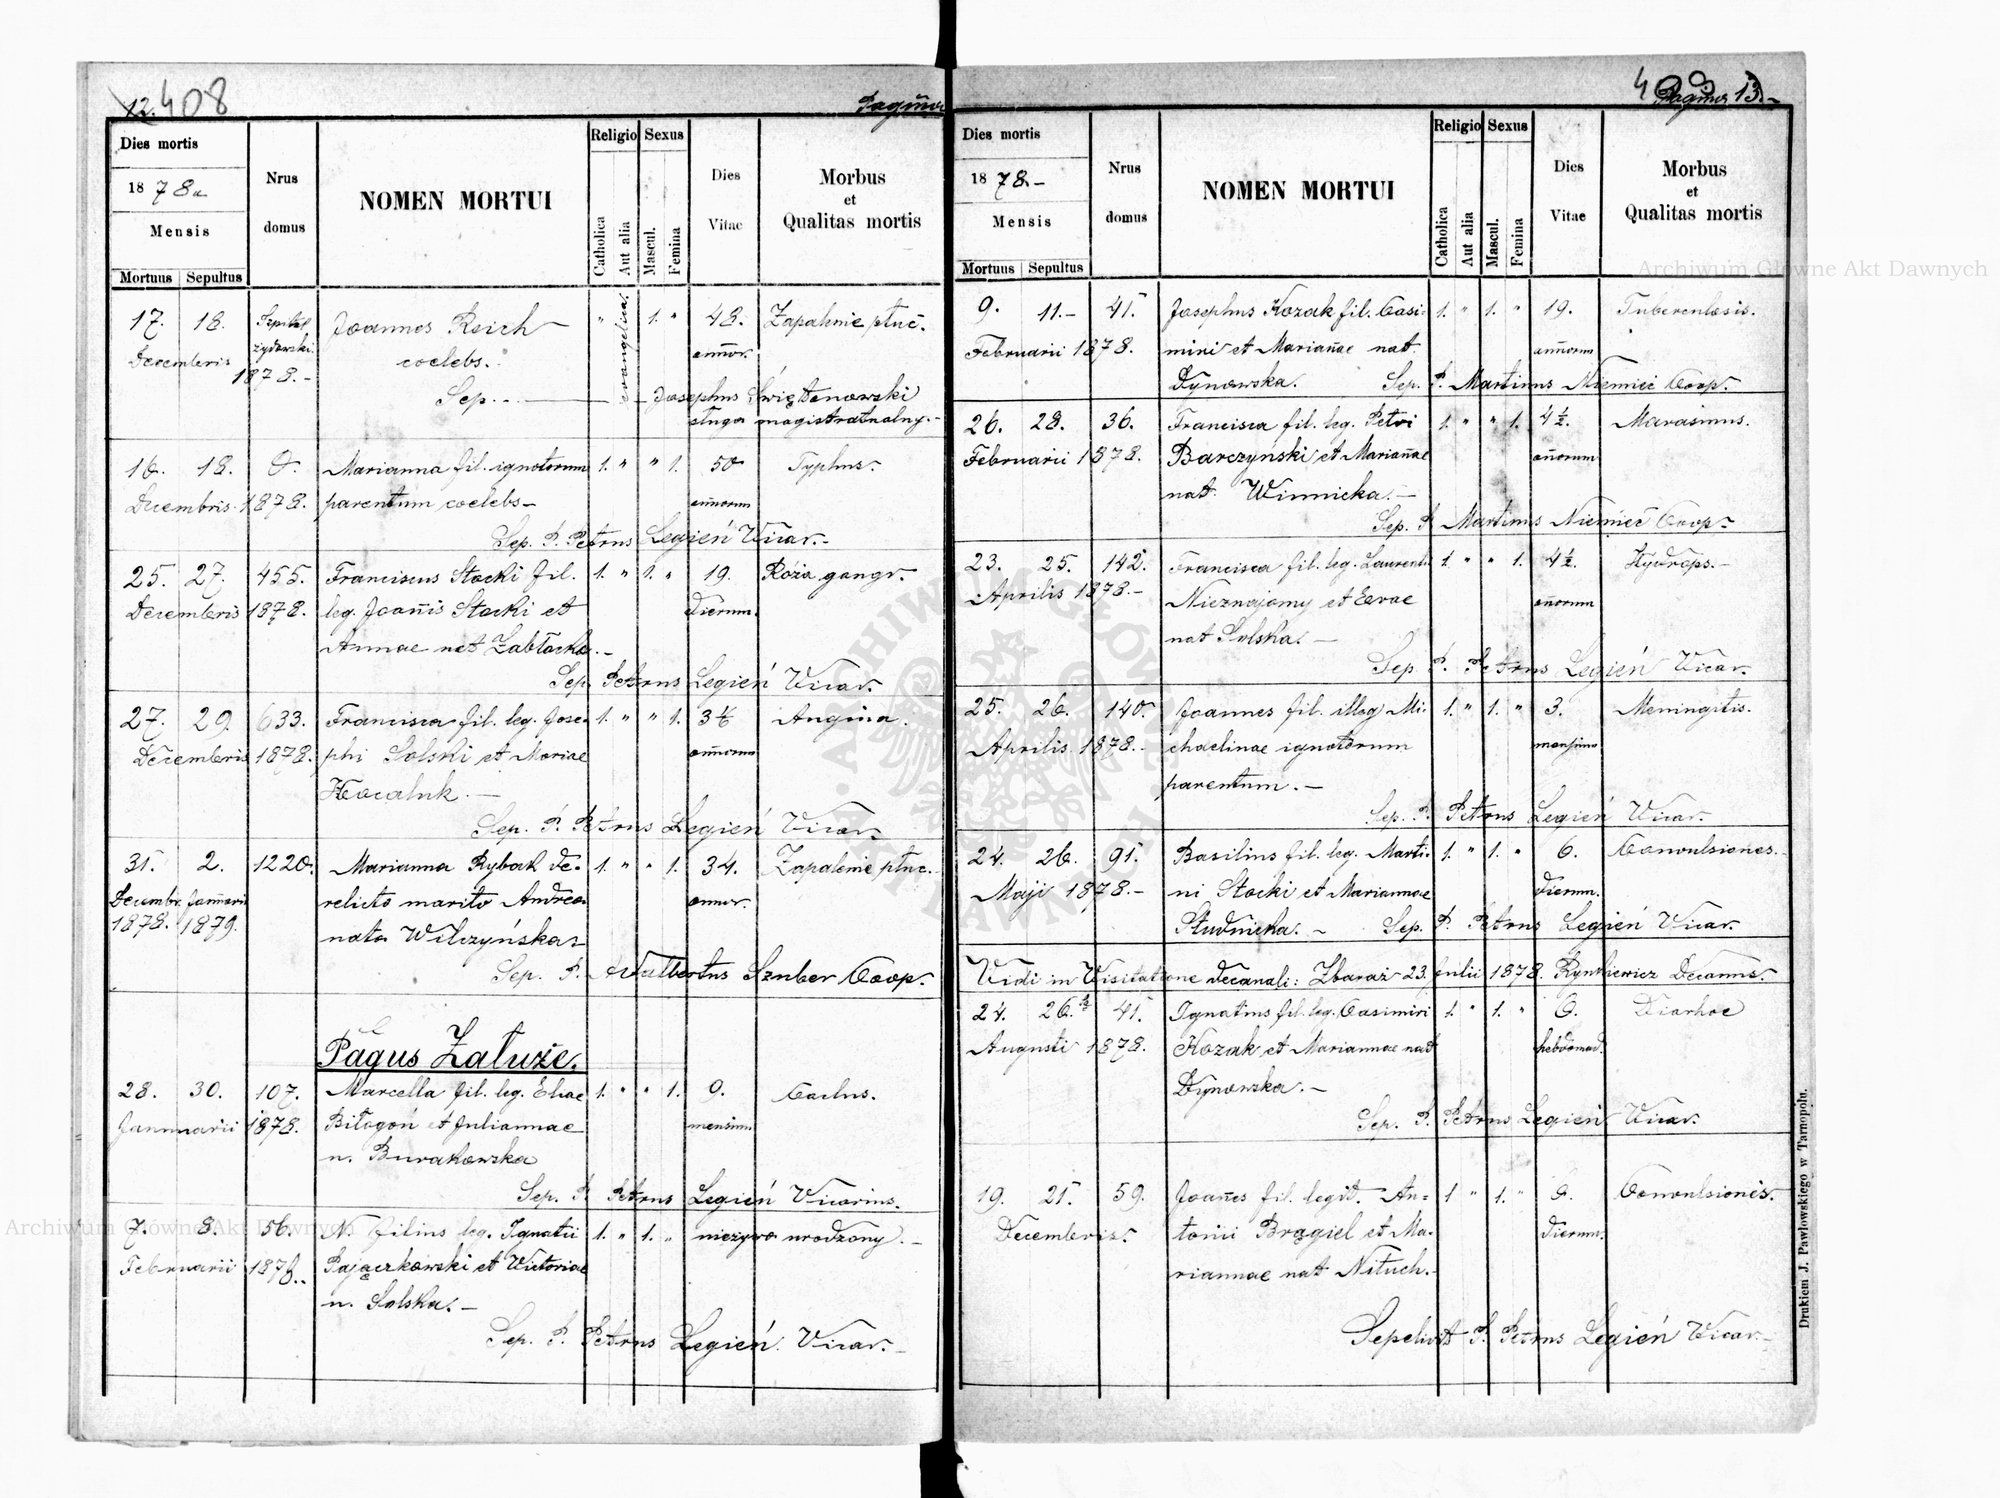 12. 408
Pagina
Dies mortis
Nrus domus
NOMEN MORTUI
Religio
Sexus
Dies Vitae
Morbus et Qualitas mortis
1878
Mensis
Mortuus Sepultus
Catholica
Aut alia
Mascul.
Femina
17. 18. Szpital Joannes Reich " evangelica 1. " 48. Zapalenie płuc.
Decembris żydowski coelebs. annor.
1878.-
Sep. Josephus Świętanowski
sługa magistratualny.-
16. 18. 0. Marianna fil. ignotorum 1. " " 1. 50 Typhus.
Decembris 1878. parentum coelebs- annorum
Sep. P. Petrus Legień Vicar.-
25. 27. 455. Franciscus Stocki fil. 1. " 1. " 19. Róża gangr.
Decembris 1878. leg. Joannis Stocki et dierum.
Annae nat Zabłocka.-
Sep. Petrus Legień Vicar.
27. 29. 633. Francisca fil. leg. Jose- 1. " " 1. Angina.
Decembris 1878. phi Solski et Mariae annorum
Kocaluk.-
Sep. P. Petrus Legień Vicar.
31. 2. 1220. Marianna Rybak de- 1. " " 1. 34. Zapalenie płuc.
Decembr. Januarii relicto marito Andrea annor.
1878. 1879. nata Wilczyńska
Sep. P. Adalbertus Szuber Coop.
Pagus Załuże.
28. 30. 107. Marcella fil. leg. Eliae 1. " " 1. 9. Carlus.
Januarii 1878. Biłogoń et Juliannae mensium
n. Burakowska
Sep. P. Petrus Legień Vicarius.
7. 8. 56. N. filius leg. Ignatii 1. " 1. " nieżywo urodzony.-
Februarii 1878. Pajączkowski et Victoriae
n. Solska.-
Sep. P. Petrus Legień Vicar.-
409 Pagina 13.
Dies mortis
Nrus domus
NOMEN MORTUI
Religio
Sexus
Dies Vitae
Morbus et Qualitas mortis
1878.-
Mensis
Mortuus Sepultus
Catholica
Aut alia
Mascul.
Femina
9. 11.- 41. Josephus Kozak fil. Casi- 1. " 1. " 19. Tuberculosis.
Februarii 1878. miri et Mariannae nat. annorum
Dynowska. Sep. P. Martinus Niemiec Coop.
26. 28. 36. Francisca fil. leg. Petri 1. " " 1. 4½. Marasmus.
Februarii 1878. Barczyński et Mariannae annorum
nat. Winnicka.-
Sep. P. Martinus Niemiec Coop.
23. 25. 142. Francisca fil. leg. Laurenti 1. " " 1. 4½. Hydrops.-
Aprilis 1878.- Nieznajomy et Evae annorum
nat Solska.-
Sep. P. Petrus Legień Vicar.
25. 26. 140. Joannes fil. illeg Mi- 1. " 1. " 3. Meningitis.
Aprilis 1878.- chaelinae ignotorum mensium
parentum.-
Sep. P. Petrus Legień Vicar.
24. 26. 91. Basilius fil. leg. Marti- 1. " 1. " 6. Convulsiones.
Maji 1878.- ni Stocki et Mariannae dierum.
Studnicka.- Sep. P. Petrus Legień Vicar.
Vidi in Visitatione decanali: Zbaraż 23. Julii 1878. Rynkiewicz Decanus.
24. 26. 41. Ignatius fil. leg. Casimiri 1. " 1. " 6. Diarhoe
Augusti 1878. Kozak et Mariannae nat hebdomad.
Dynowska.-
Sep. P. Petrus Legień Vicar.
19. 21. 59. Joannes fil. legit. An- 1 " 1. " 6. Convulsiones.
Decembris. tonii Brągiel et Ma- dierum.
riannae nat Nituch.-
Sepelivit P. Petrus Legień Vicar-
Drukiem J. Pawłowskiego w Tarnopolu.
Archiwum Główne Akt Dawnych
Archiwum Główne Akt Dawnych
ARCHIWUM GŁÓWNE AKT DAWNYCH